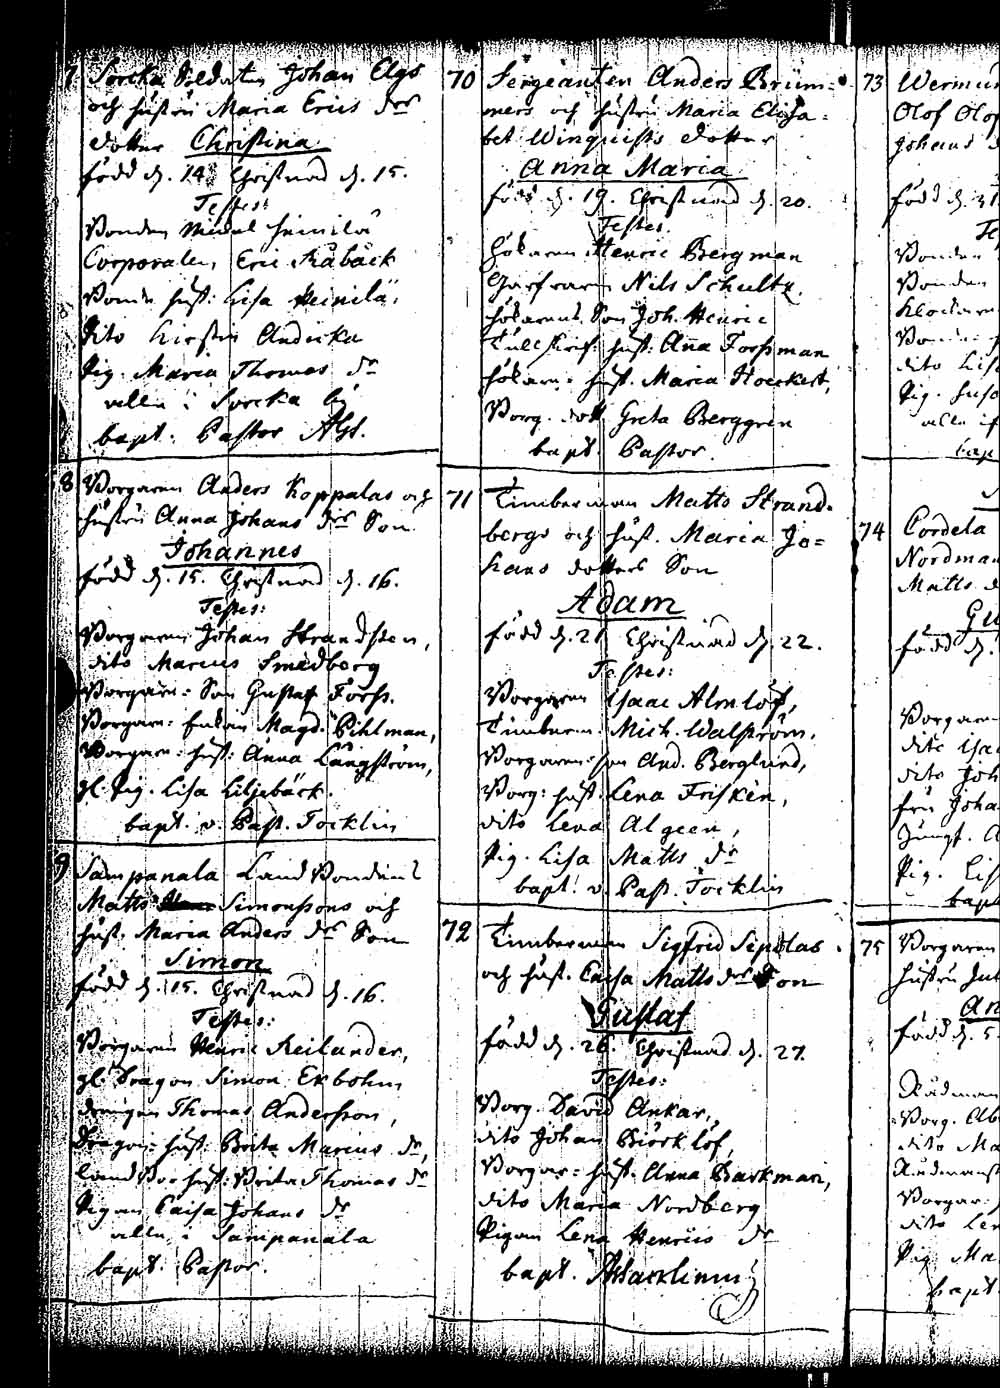 7 Sorcka Soldaten Johan Elgs
och hustru Maria Erics dr
dotter Christina
född d. 14 Christnad d. 15.
Testes:
Bonden Michel Heinilä
Corporalen Eric Råbäck
Bonde hust: Lisa Heinilä
dito Kirstin Andicka
Pig. Maria Thomas dr
alla i Sorcka by
bapt. Pastor
8 Borgaren Anders Koppalas och
hustru Anna Johans dr Son
Johannes
född d. 15. Christnad d. 16.
Testes:
Borgaren Johan Strandsten,
dito Marcus Smedborg
Borgare: Son Gustaf Forss.
Borgare: Enkan Magd. Pihlman,
Borgare: hust: Anna Långström,
gl. Pig. Lisa Liljebäck.
bapt. v. Past. Tocklin
9 Sampanala Land Bondens
Matts Simonssons och
hust. Maria Anders dr Son
Simon
född d. 15. Christnad d. 16.
Testes:
Borgaren Henric Keilander,
gl. Dragon Simon Ekbohm
drengen Thomas Andersson,
Dragon: hust: Brita Marcus dr,
Land Bo: hust: Brita Thomas dr
Pigan Caisa Johans dr
alla i Sampanala
bapt. Pastor.
70 Sergeanten Anders Brüm=
mers och hustru Maria Elisa=
bet Winquists dotter
Anna Maria
född d. 19. Christnad d. 20.
Testes.
Hökaren Henric Bergman
Garfvaren Nils Schultz.
Hökarens Son Joh. Henric
Tullskrif: hust: Anna Forssman
Hökare: hust. Maria Hoeckert,
Borg. dott Greta Berggren
bapt Pastor.
71 Timberman Matts Strand=
bergs och hust. Maria Jo=
hans dotters Son
Adam
född d. 21 Christnad d. 22.
Testes:
Borgaren Isaac Almlöf,
Timberm: Mich. Walström,
Borgaren: son And. Berglund,
Borg: hust. Lena Friskin,
dito Lena Algeen,
Pig. Lisa Matts dr
bapt. v. Past. Tocklin
72 Timberman Sigfrid Sipolas
och hust. Caisa Matts dr Son
Gustaf
född d. 26 Christnad d. 27.
Testes:
Borg. David Ankar,
dito Johan Biörklöf,
Borgar: hust. Anna Barkman,
dito Maria Nordberg
Pigan Lena Henrics dr
bapt.
73 Wermu
Olof Olof
Johans d
född d. 31
Te
Bonden
Bonden
Klockare
Bonde: h
dito Lisa
Pig. Susa
bapt
74 Cordela
Nordman
Matts d
Gu
född d.
Borgare
dito Isaa
dito Joh
fru Joha
Jungf. A
Pig. Lis
bapt
75 Borgaren
hustru
An
född d. 5.
Rådman
Borg. Ab
dito Ma
Rådmans
Borgar:
dito Len
Pig. Ma
bapt.